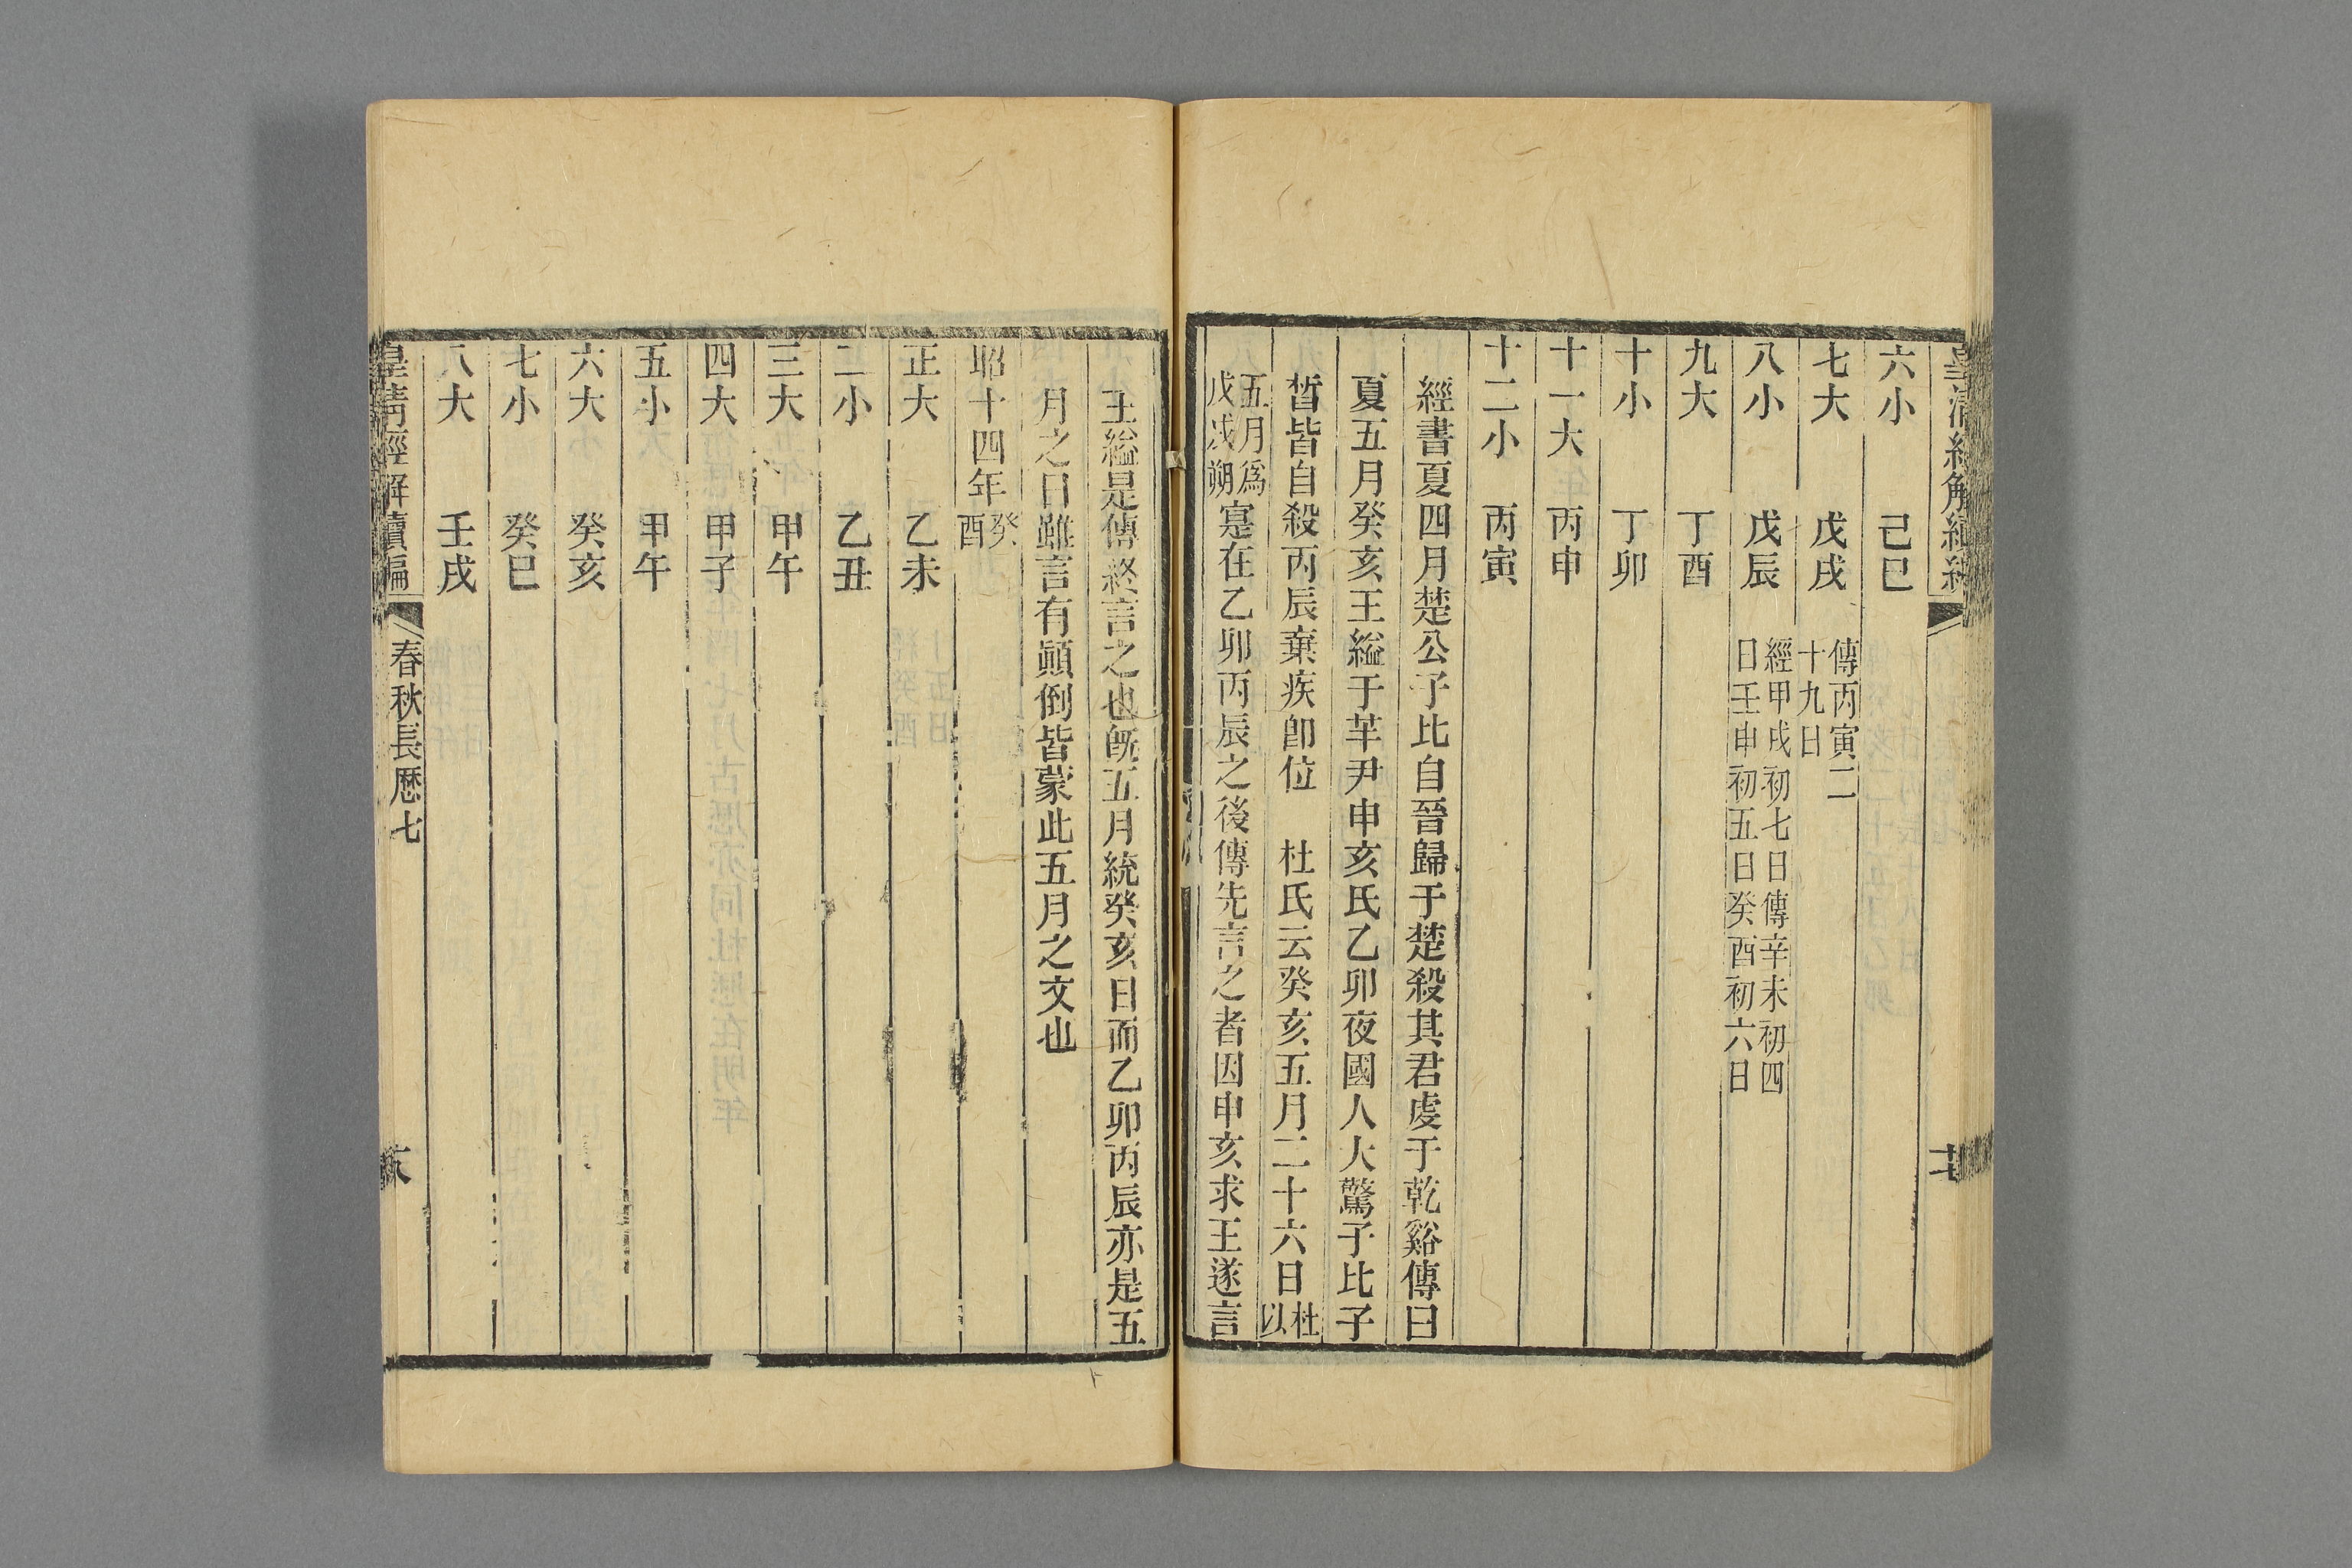 六小　己巳
七大　戊戌　傳丙寅二
十九日
八小　戊辰　經甲戌初七日傳辛未初四
日壬申初五日癸酉初六日
九大　丁酉
十小　丁卯
十一大　丙申
十二小　丙寅
經書夏四月楚公子比自晉歸于楚殺其君虔于乾谿傳曰
夏五月癸亥王縊于芋尹申亥氏乙卯夜國人大驚子比子
晳皆自殺丙辰棄疾卽位　杜氏云癸亥五月二十六日杜
以
五月爲
戊戌朔寔在乙卯丙辰之後傳先言之者因申亥求王遂言
王縊是傳終言之也旣五月統癸亥日而乙卯丙辰亦是五
月之日雖言有顚倒皆蒙此五月之文也
昭十四年癸
酉
正大　乙未
二小　乙丑
三大　甲午
四大　甲子
五小　甲午
六大　癸亥
七小　癸巳
八大　壬戌
皇清經解續編　春秋長厯七